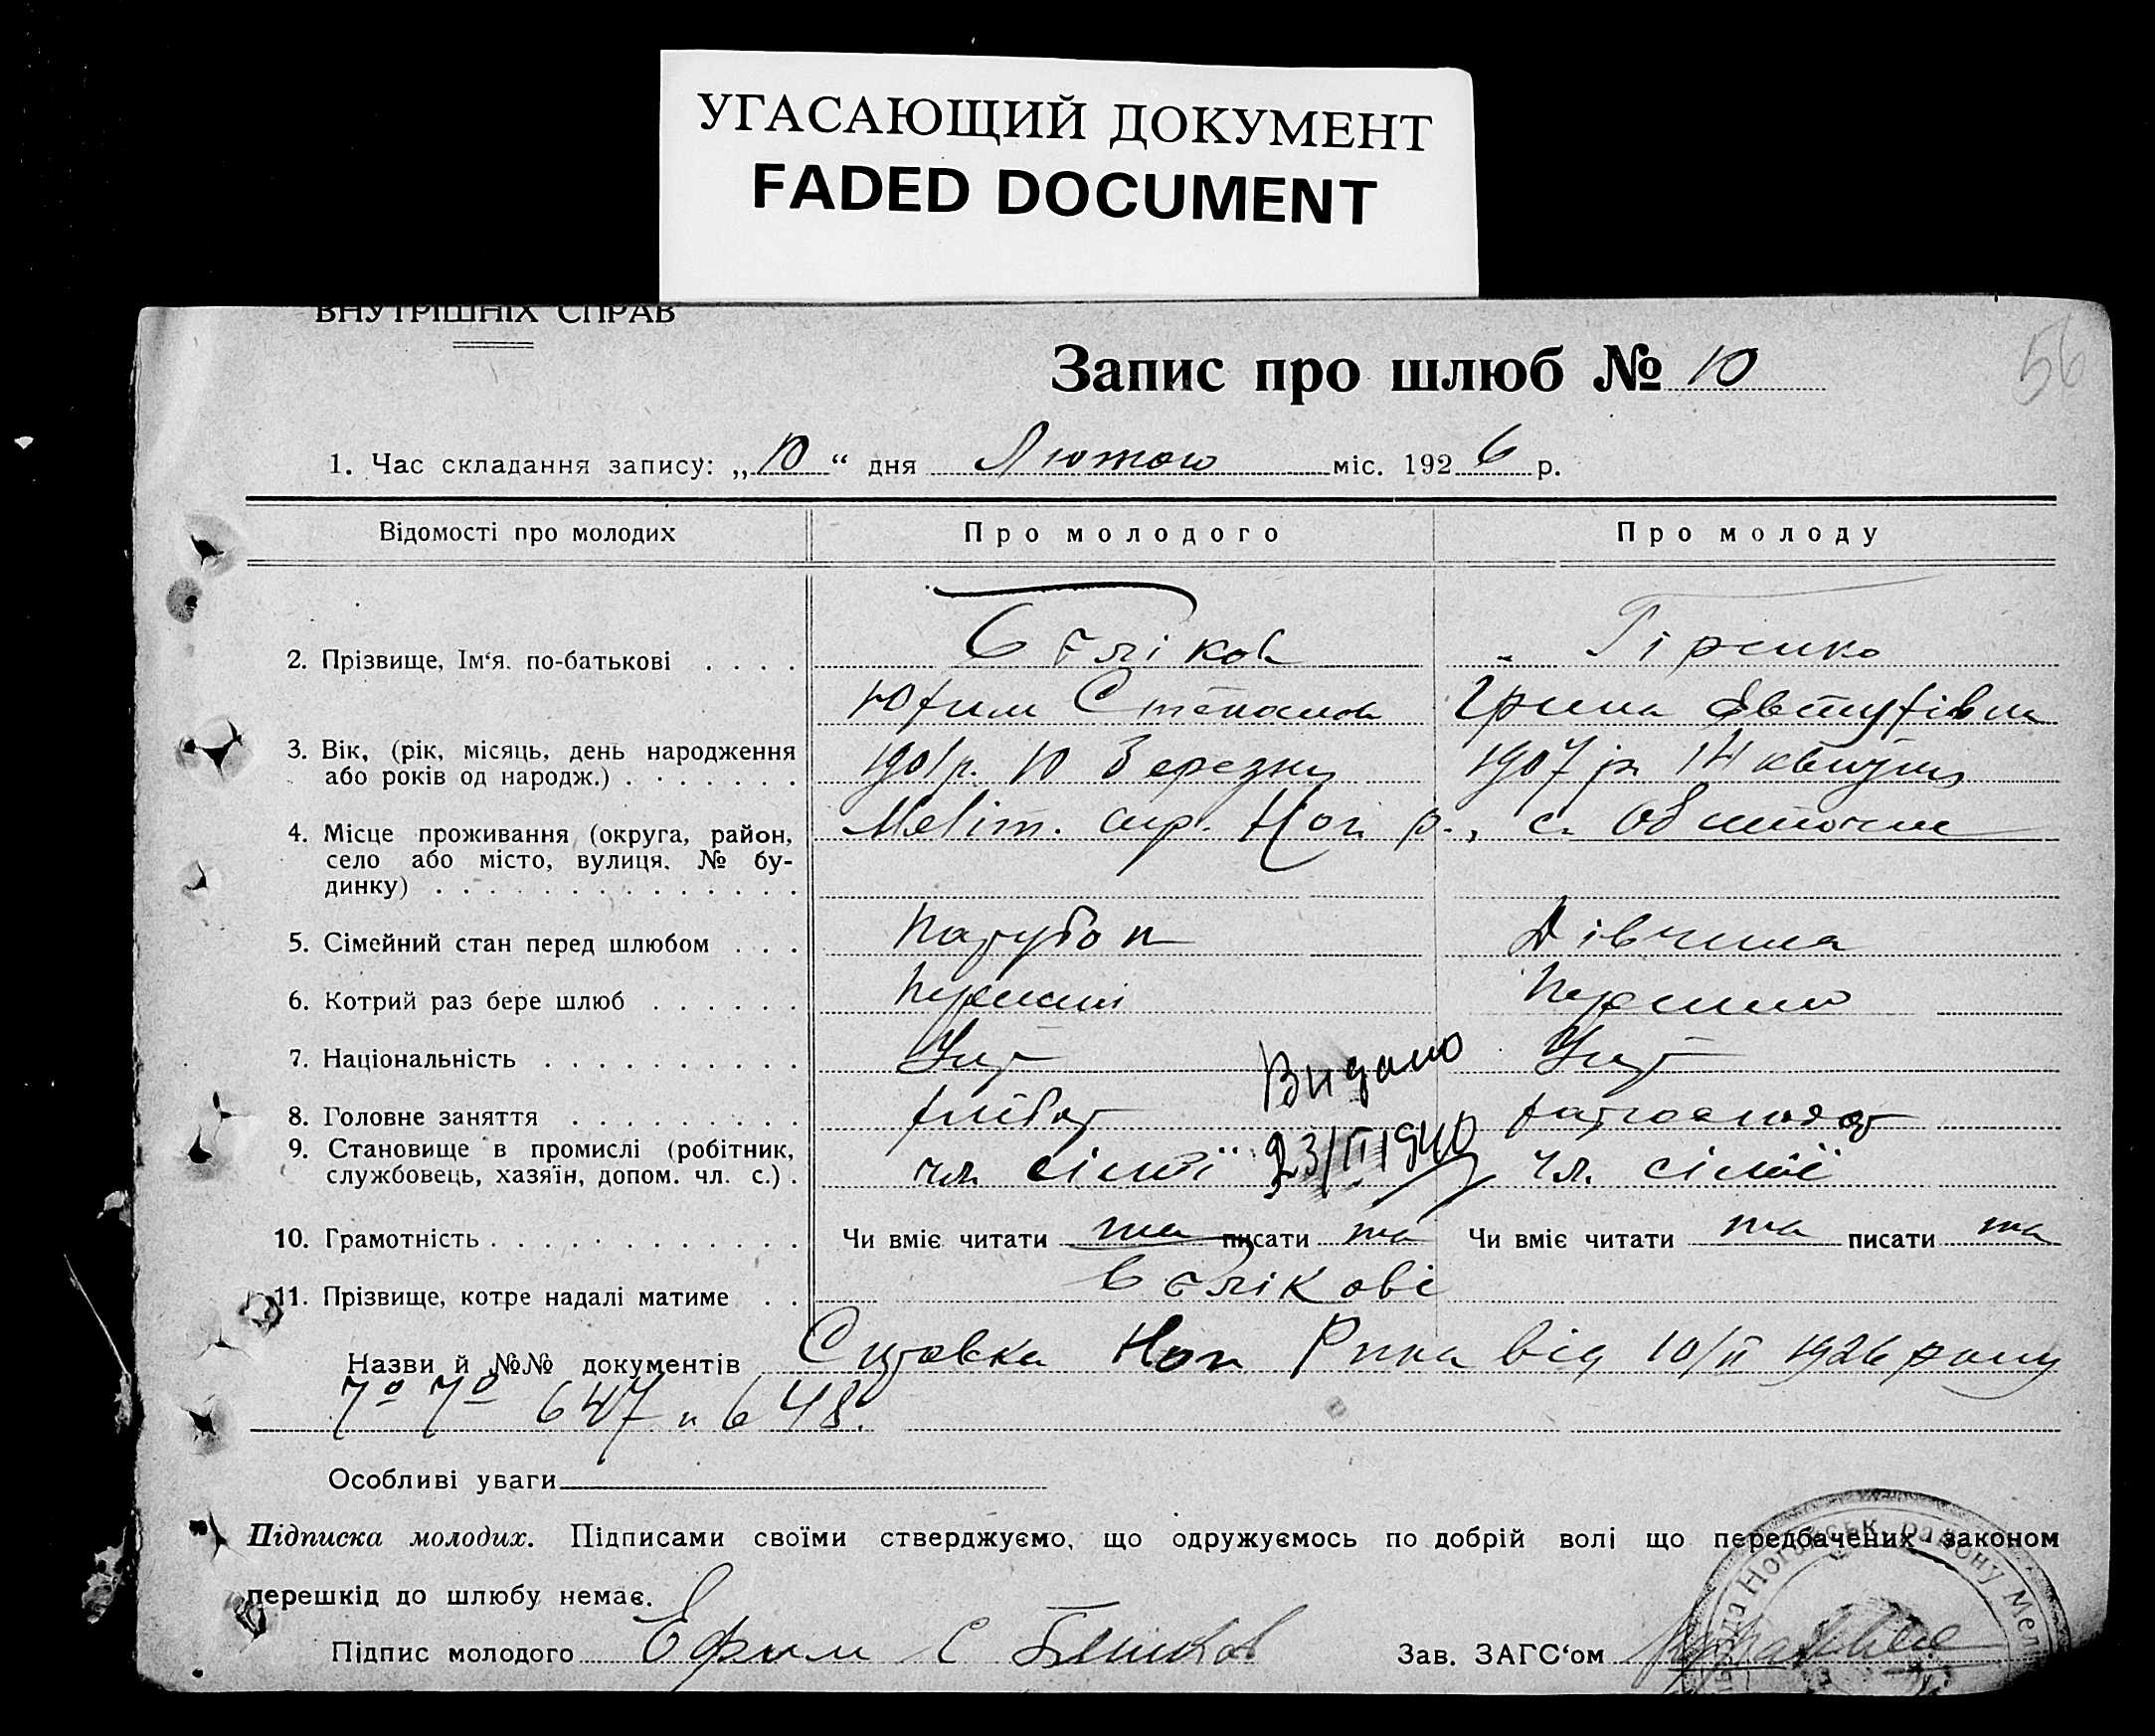 УГАСАЮЩИЙ ДОКУМЕНТ
FADED DOCUMENT
ВНУТРІШНІХ СПРАВ
56
Запис про шлюб № 10
1. Час складання запису: „10“ дня Лютого міс. 1926 р.
Відомості про молодих Про молодого Про молоду
2. Прізвище, Ім‘я. по-батькові Бєліков Гіренко
Юхим Степанов Ірина Євтухівна
3. Вік, (рік, місяць, день народження 1901 р. 10 Березня 1907 р. 14 квітня
або років од народж.)
4. Місце проживання (округа, район, Меліт. окр. Ног. р., с. Обиточне
село або місто, вулиця, № бу-
динку)
5. Сімейний стан перед шлюбом Парубок Дівчина
6. Котрий раз бере шлюб Перший Перший
7. Національність Укр Укр
Видано
8. Головне заняття хлібор
9. Становище в промислі (робітник, 23/II 1940
службовець, хазяїн, допом. чл. с.) чл. сім'ї чл. сім'ї
10. Грамотність Чи вміє читати та писати та Чи вміє читати та писати та
11. Прізвище, котре надалі матиме Бєлікові
Назви й №№ документів Ног Рика від 10/II 1926 року
647 и 648.
Особливі уваги
Підписка молодих. Підписами своїми стверджуємо, що одружуємось по добрій волі що передбачених законом
перешкід до шлюбу немає.
Підпис молодого Ефим С Беликов Зав. ЗАГС‘ом
Ногайськ. району Мел